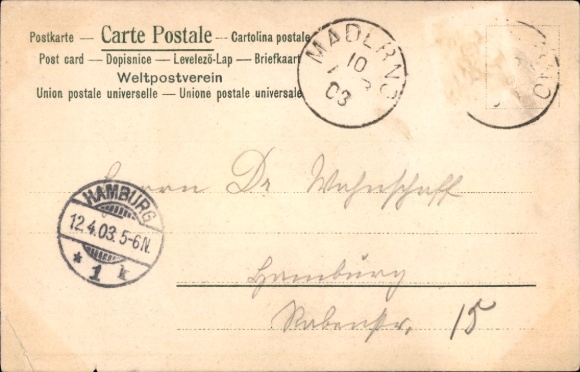 Postkarte — Carte Postale — Cartolina postale
Post card — Dopisnice — Levelező-Lap — Briefkaart
Weltpostverein
Union postale universelle — Unione postale universale
MADERNO
10
03
HAMBURG
12.4.03. 5-6N.
* 1 k
Herrn Dr Wohnschaff
Hamburg
Rabenstr. 15